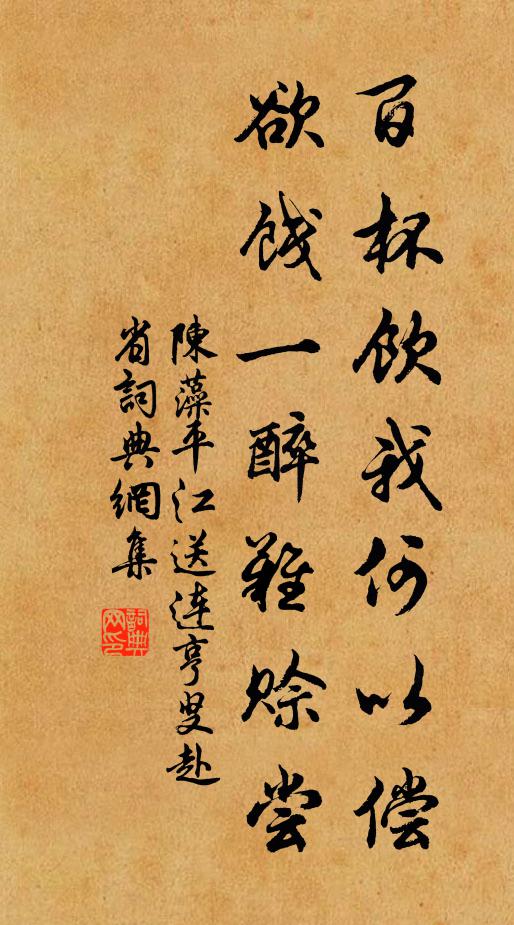 百杯飲我何以偿
欲餞一醉難赊尝
陳藻平江送连亨叟赴
省詞典網集
詞典网印